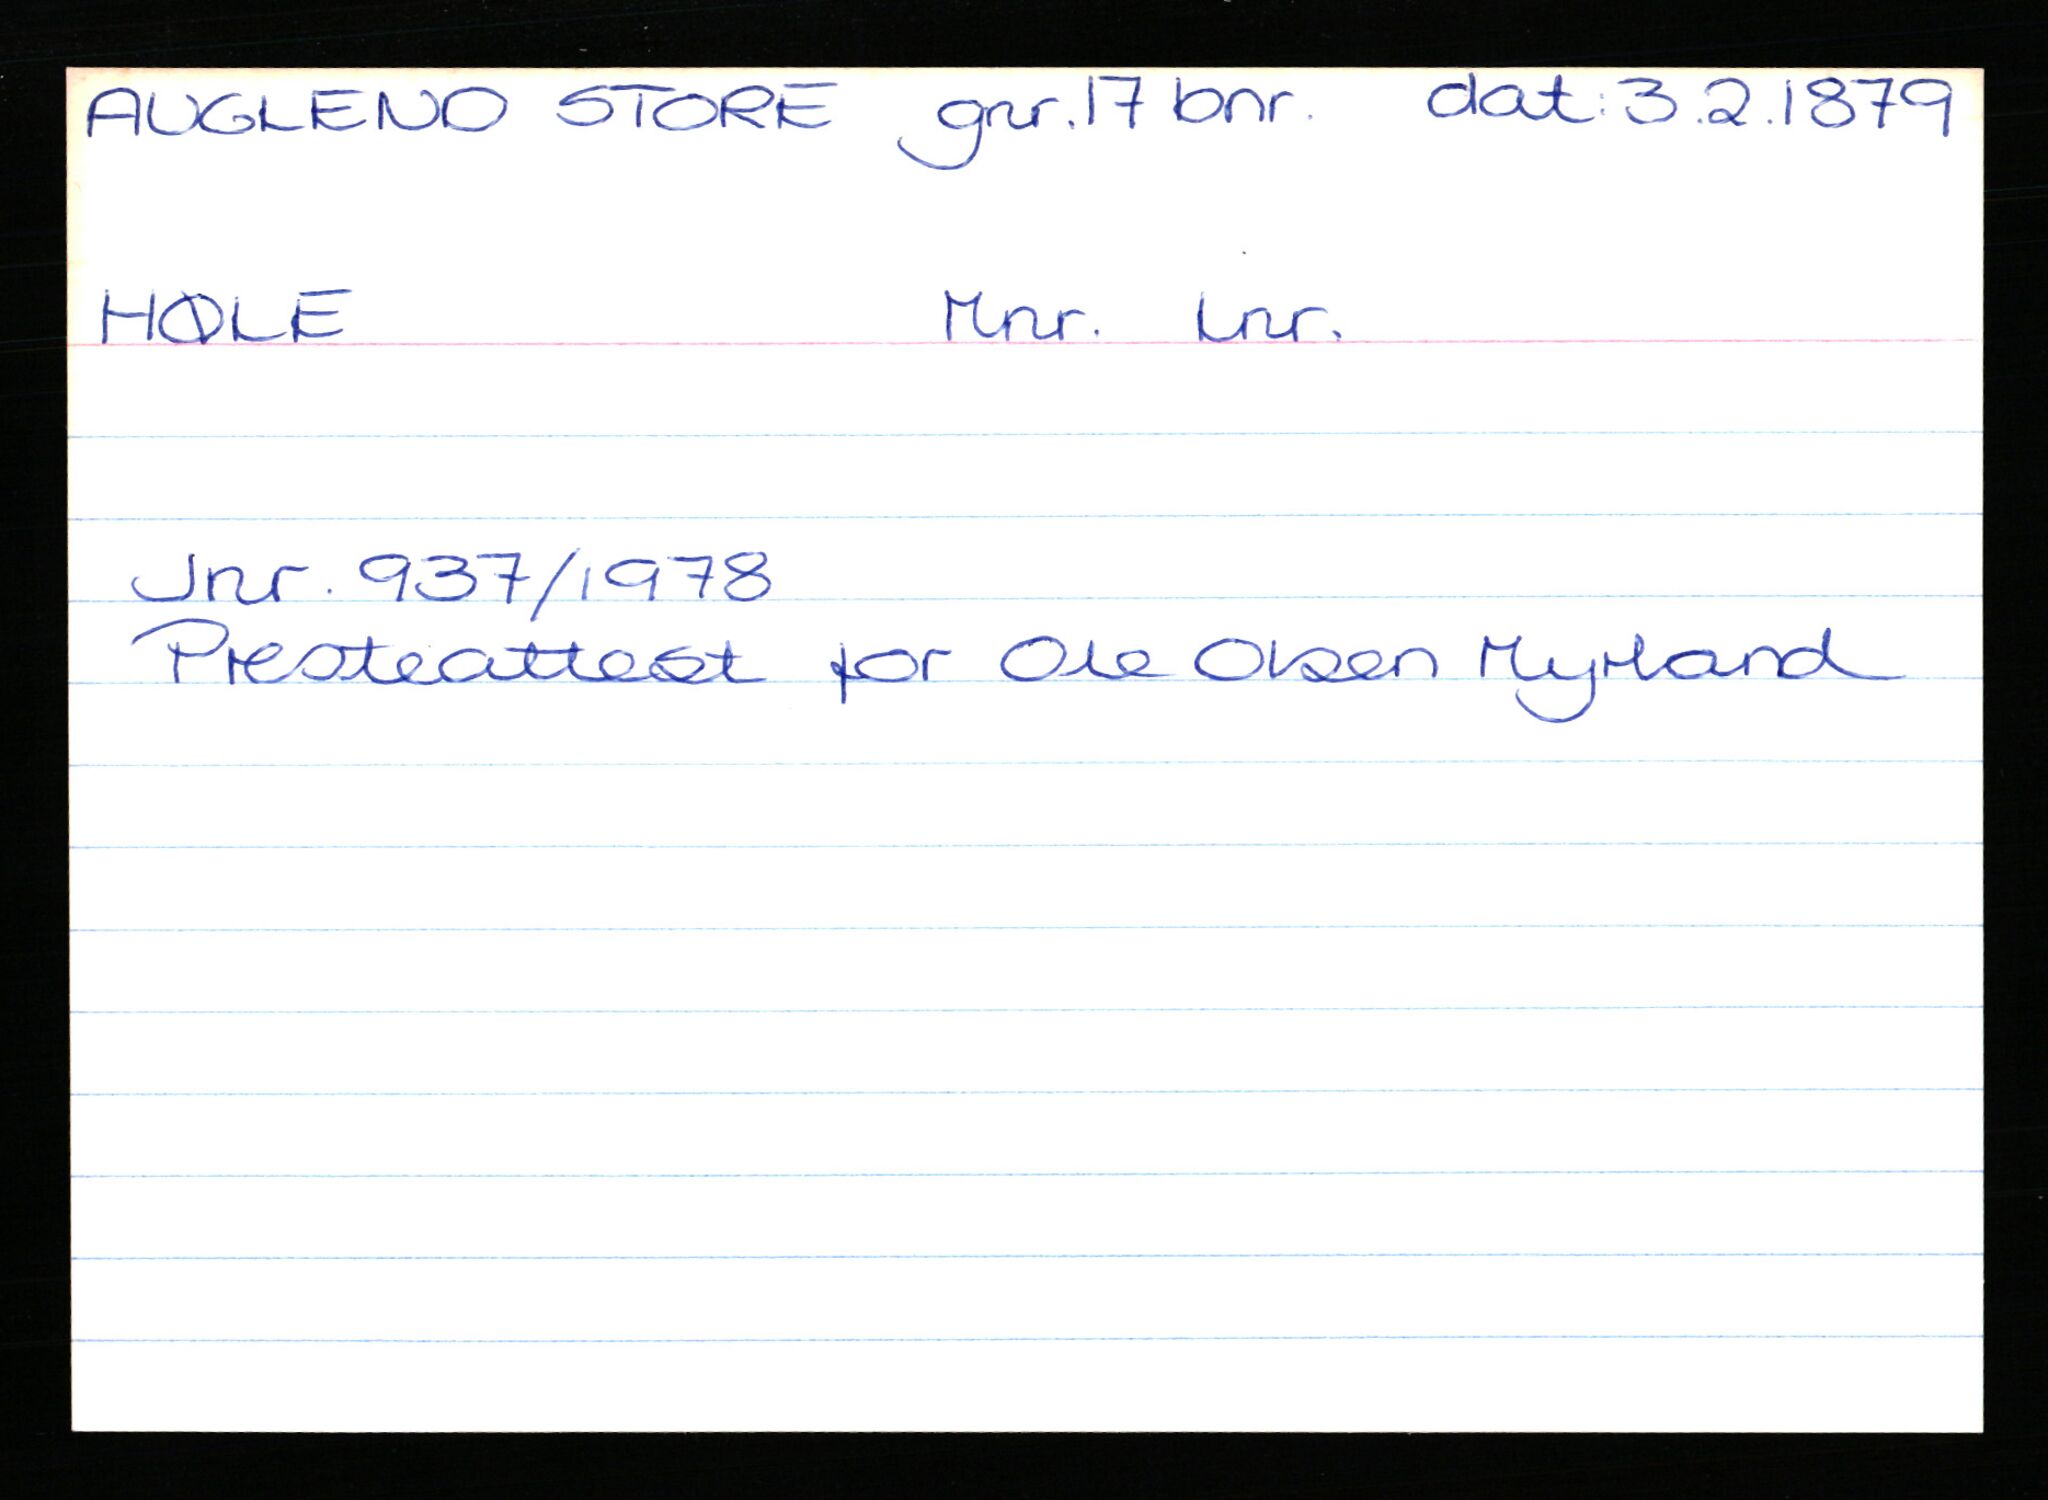 AUGLEND STORE gnr. 17 bnr. dat: 3.2.1879
HØLE Mnr. Lnr.
Jnr. 937/1978
Presteattest for Ole Olsen Myrland